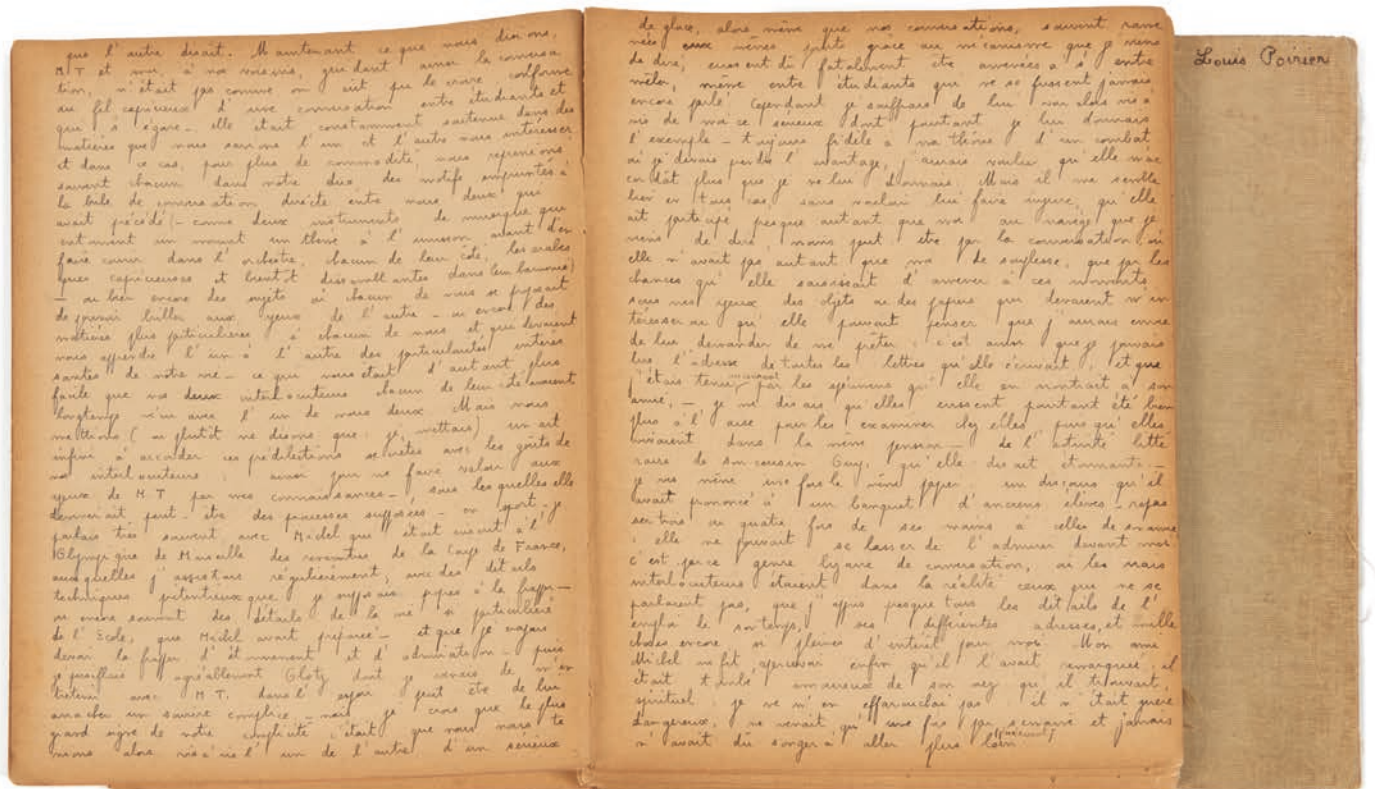 que l'autre disait. Maintenant ce que nous disions,
M.T et moi, à nos voisins, guidant ainsi la conversa
tion, n'était pas comme on eût pu le croire conforme
au fil capricieux d'une conversation entre étudiants et
qui s'égare – elle était constamment soutenue dans des
matières que nous savions l'un et l'autre nous intéresser
et dans ce cas, pour plus de commodité nous reprenions
souvent chacun dans notre duo des motifs empruntés à
la bribe de conversation directe entre nous deux qui
avait précédé (– comme deux instruments de musique qui
entonnent un moment un thème à l'unisson avant d'en
faire courir dans l'orchestre, chacun de leur côté, les arabes
ques capricieuses et bientôt dissemblantes dans leur harmonie)
– ou bien encore des sujets où chacun de nous se proposait
de pouvoir briller aux yeux de l'autre – ou encore des
matières plus particulières à chacun de nous et qui devaient
nous apprendre l'un à l'autre des particularités intéres
santes de notre vie – ce qui nous était d'autant plus
facile que nos deux interlocuteurs chacun de leur côté avaient
longtemps vécu avec l'un de nous deux. Mais nous
mettions (ou plutôt ne disons que : je mettais) un art
infini à accorder ces prédilections secrètes avec les goûts de
nos interlocuteurs : ainsi pour me faire valoir aux
yeux de M.T par mes connaissances –, sous lesquelles elle
devinerait peut-être des prouesses supposées – en sport – je
parlais très souvent avec Michel qui était inscrit à l'
Olympique de Marseille des rencontres de la Coupe de France,
auxquelles j'assistais régulièrement, avec des détails
techniques prétentieux que je supposais propres à la frapper –
ou encore souvent des détails de la vie si particulière
de l'Ecole, que Michel avait préparée – et que je croyais
devoir la frapper d'étonnement et d'admiration – puis
je persiflais agréablement Glotz dont je venais de m'en
tretenir avec M.T. dans l'espoir peut être de lui
arracher un sourire complice – mais je crois que le plus
grand signe de notre complicité c'était que nous nous te
nions alors vis à vis l'un de l'autre d'un sérieux
de glace, alors même que nos conversations, souvent rame
nées eux mêmes sujets grâce au mécanisme que je viens
de dire, eussent dû fatalement être amenées à s'entre
mêler, même entre étudiants qui ne se fussent jamais
encore parlé. Cependant je souffrais de lui voir alors vis à
vis de moi ce sérieux dont pourtant je lui donnais
l'exemple – toujours fidèle à ma thèse d'un combat
où je devais perdre l'avantage, j'aurais voulu qu'elle m'ac
cordât plus que je ne lui donnais. Mais il me semble
bien en tous cas, sans vouloir lui faire injure, qu'elle
ait participé presque autant que moi au manège que je
viens de dire, moins peut être par la conversation, où
elle n'avait pas autant que moi de souplesse, que par les
chances qu'elle saisissait d'amener à ces moments
sous mes yeux des objets ou des papiers qui devaient m'in
téresser ou qu'elle pouvait penser que j'aurais envie
de lui demander de me prêter : c'est ainsi que je pouvais
lire l'adresse de toutes les lettres qu'elle écrivait, et que
j'étais tenu par les spécimens qu'elle en montrait à son
amie, – je me disais qu'elles eussent pourtant été bien
plus à l'aise pour les examiner chez elles puisqu'elles
vivaient dans la même pension – de l'activité litté
raire de son cousin Guy, qu'elle disait étonnante –
je vis même une fois le même papier – un discours qu'il
avait prononcé à un banquet d'anciens élèves – repas
ser trois ou quatre fois de ses mains à celles de son amie
: elle ne pouvait se lasser de l'admirer devant moi
c'est par ce genre bizarre de conversation, où les vrais
interlocuteurs étaient dans la réalité ceux qui ne se
parlaient pas, que j'appris presque tous les détails de l'
emploi de son temps, ses différentes adresses, et mille
choses encore si pleines d'intérêt pour moi. Mon ami
Michel me fit apercevoir enfin qu'il l'avait remarquée, il
était tombé amoureux de son nez qu'il trouvait
spirituel : je ne m'en effarouchai pas : il n'était guère
dangereux, ne venait qu'une fois par semaine et jamais
n'avait dû songer à aller plus loin
Louis Poirier